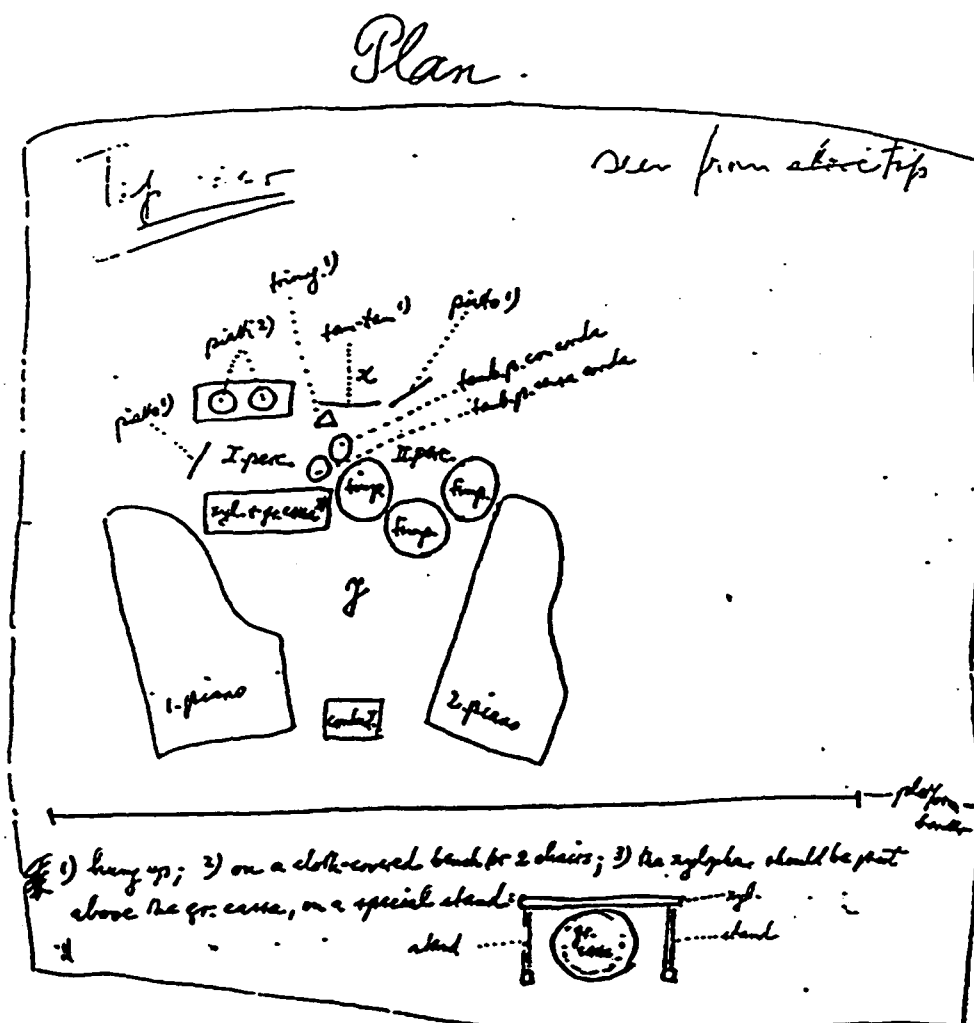 Plan.
seen from
triang. 1)
tam-tam 1)
piatto 1)
piatti 2)
x
tamb. p. con corda
tamb. p. senza corda
piatto 1)
I. perc.
II. perc.
timp.
timp.
timp.
xyl. + gr. cassa 3)
y
1. piano
2. piano
conduct.
platform
border
1) hung up; 2) on a cloth-covered bench or 2 chairs; 3) the xylophone should be put
above the gr. cassa, on a special stand:
xyl.
stand
gr.
cassa
stand